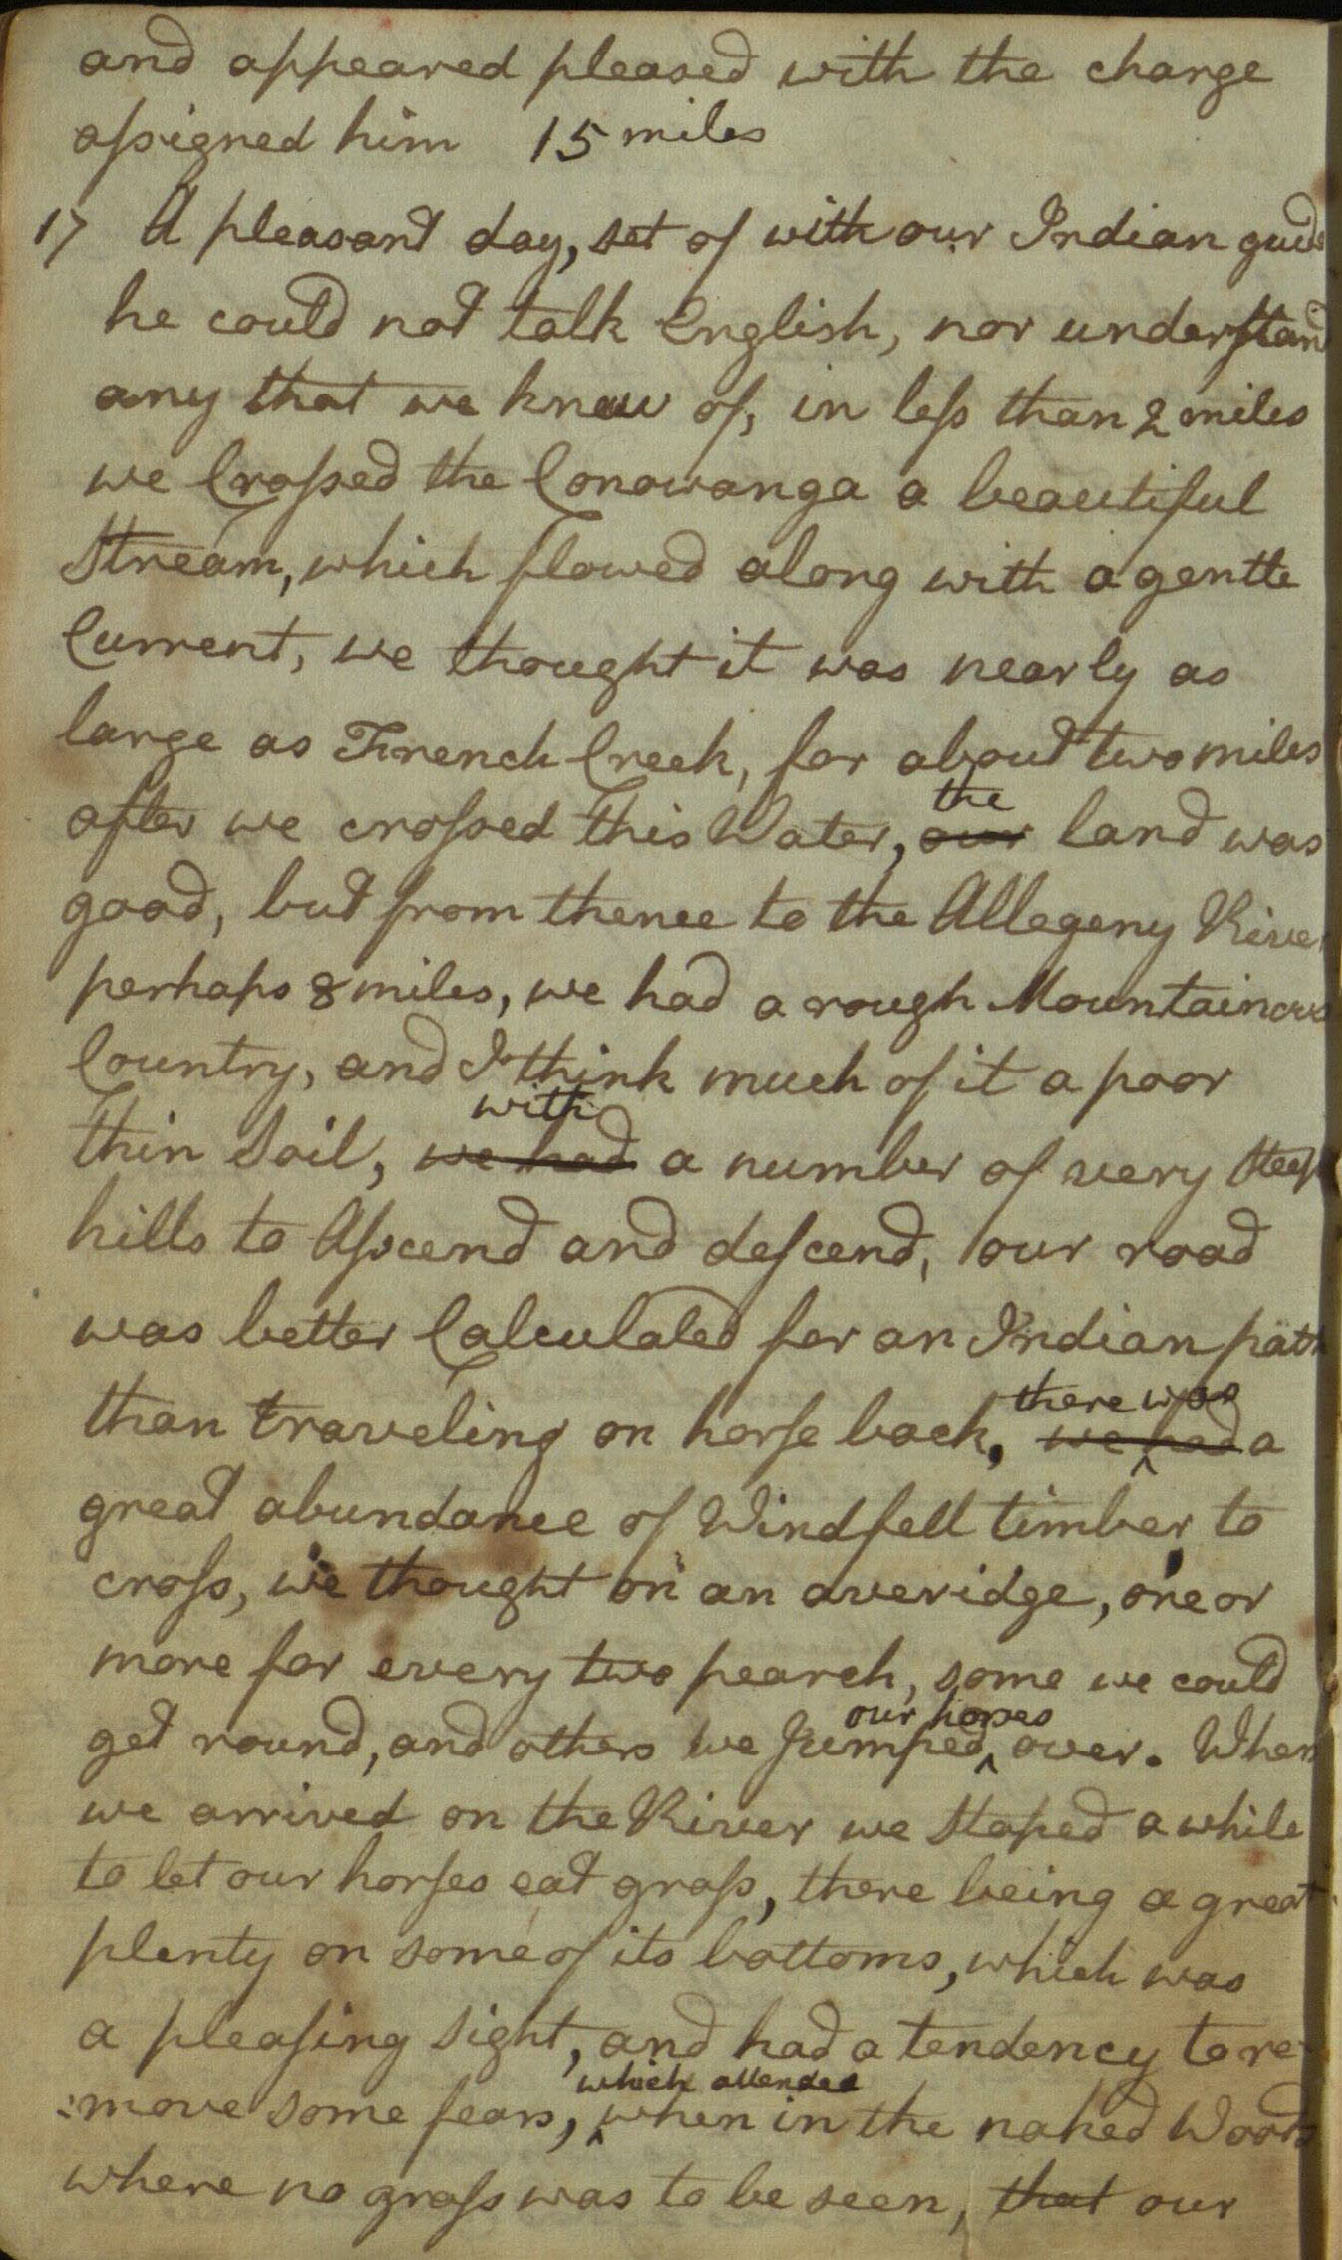 and appeared pleased with the charge
aſsigned him 15 miles
17 A pleasant day, set of with our Indian guide
he could not talk English, nor underſtand
any that we knew of, in leſs than 2 miles
we Croſsed the Conowanga a beautiful
Stream, which flowed along with a gentle
Current, we thought it was nearly as
large as French Creek, for about two miles
the
after we croſsed this Water, our land was
good, but from thence to the Allegeny River
perhaps 8 miles, we had a rough Mountainous
Country, and I think much of it a poor
with
thin Soil, we had a number of very Steep
hills to Aſscend and deſcend, our road
was better Calculated for an Indian path
there was
than traveling on horſe back, we had a
great abundance of Windfell timber to
croſs, we thought on an averidge, one or
more for every two pearch, some we could
our horses
get round, and others we Jumped ^ over. When
we arrived on the River we Stoped a while
to let our horſes eat graſs, there being a great
plenty on some of its bottoms, which was
a pleaſing Sight, and had a tendency to re-
which attended
:move some fears, ^ when in the naked Woods
where no graſs was to be seen, that our